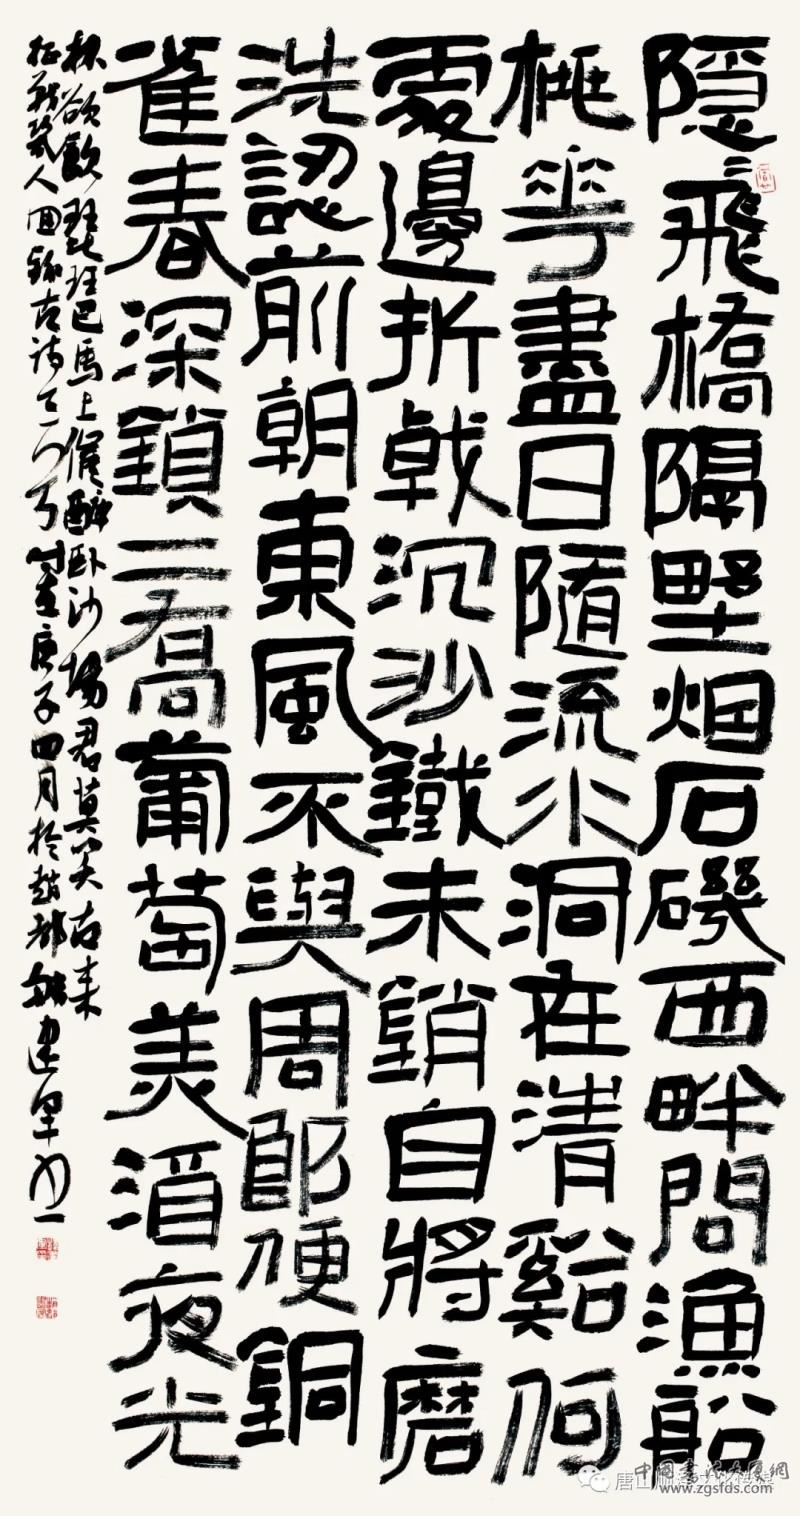 隱〻飛橋隔野烟石磯西畔問漁船
桃花盡日隨流水洞在清谿何
處邊折戟沉沙鐵未銷自將磨
洗認前朝東風不與周郎便銅
雀春深鎖二喬葡萄美酒夜光
杯欲飲琵琶馬上催醉卧沙場君莫笑古來
征戰幾人回錄古詩三首時在庚子四月於趙都建軍書
唐山
www.zgsfds.com